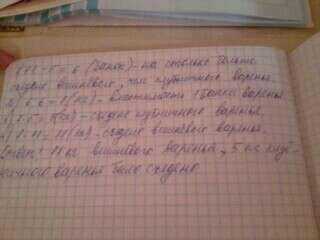 1) 11-5=6 (банок) - на сколько больше
съдено вишнёвого, чем клубничного варенья.
2) 6:6=1(кг) - вместимость 1 банки варенья.
3) 1·5=5(кг) - съдено клубничного варенья.
4) 1·11=11(кг) - съдено вишнёвого варенья.
Ответ: 11 кг вишнёвого варенья, 5 кг клуб-
ничного варенья было съдено.